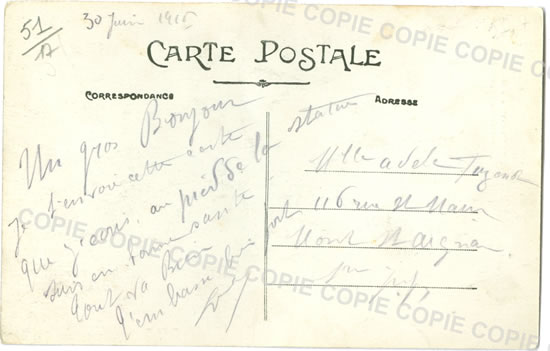 51
30 Juin 1915
CARTE POSTALE
CORRESPONDANCE
ADRESSE
Un gros Bonjour
Je t'envoie cette carte
que j'écris au pied de la statue
suis en bonne santé
tout va Bien
t'embrasse bien fort
Mlle Adèle
116 rue St
Mont St Aignan
COPIE COPIE COPIE COPIE COPIE
COPIE COPIE COPIE COPIE COPIE COPIE COPIE COPIE